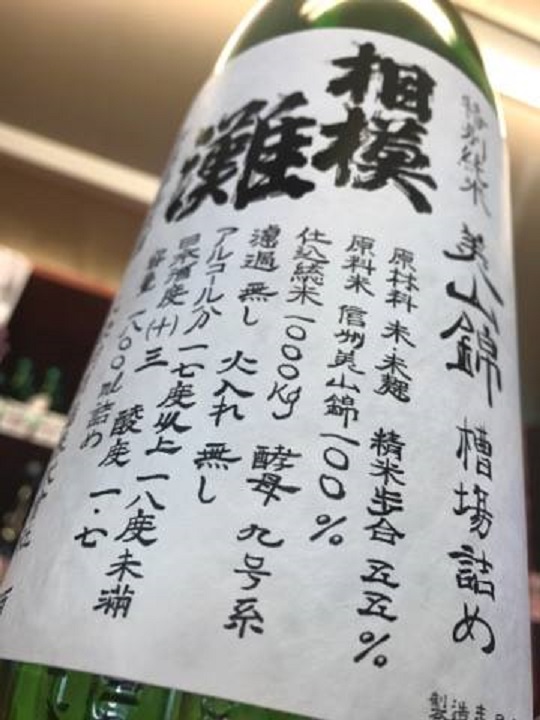 特別純米 美山錦 槽場詰め
相模
灘
原材料 米・米麹 精米歩合 五五%
原料米 信州美山錦一〇〇%
仕込総米一〇〇〇kg 酵母 九号系
濾過 無し 火入れ 無し
アルコール分 一七度以上 一八度未満
日本酒度(十)三 酸度 一・七
容量 一八〇〇ml詰め
製造